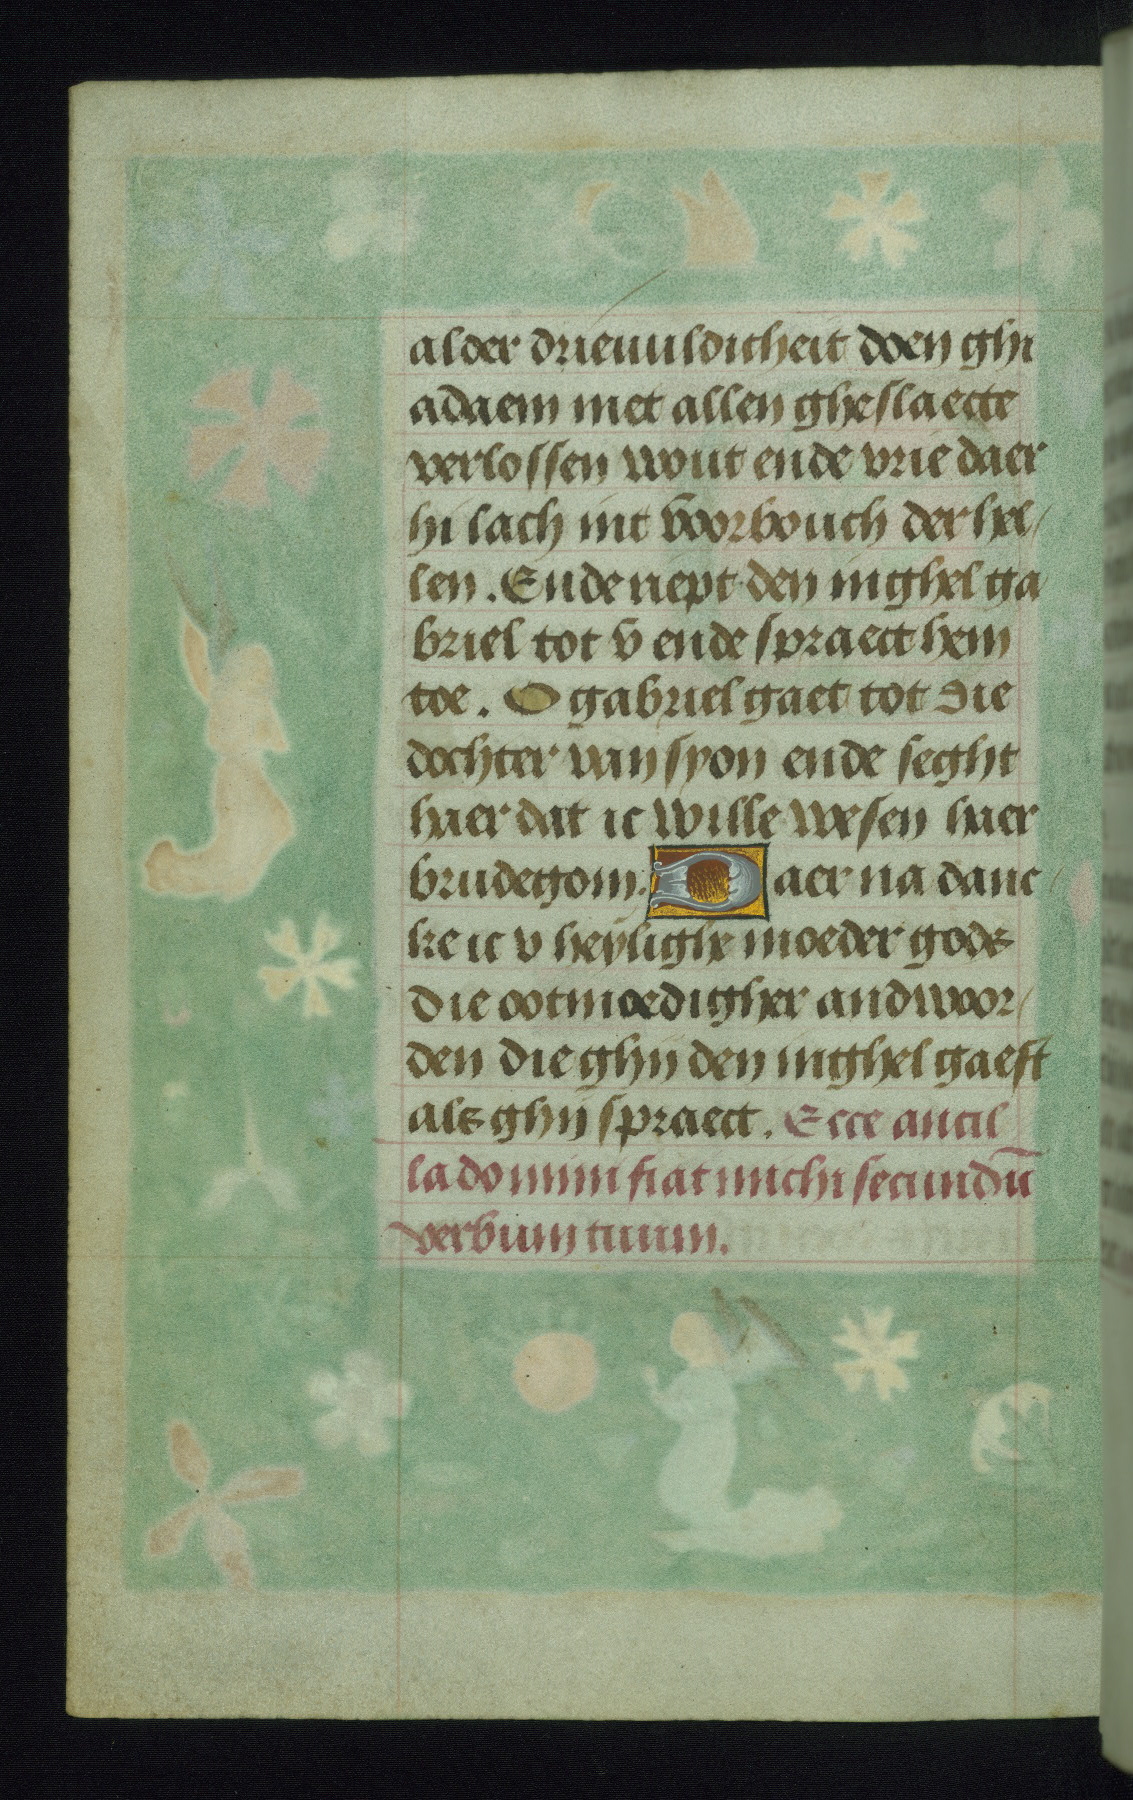 alder drieuuldicheit doen ghi
adaem met allen gheslaecte
verlossen wout ende vrie daer
hi lach int voorbouch der hel/
len. Ende riept den inghel ga
briel tot v̄ ende spraect hem
toe. O gabriel gaet tot die
dochter van syon ende seght
haer dat ic wille wesen haer
brudegom. Daer na danc/
ke ic v heÿlighe moeder gods
die ootmoedigher andwoor/
den die ghij den inghel gaeft
als ghij spraect. Ecce ancil
la domini fiat michi secundū
verbum tuum.